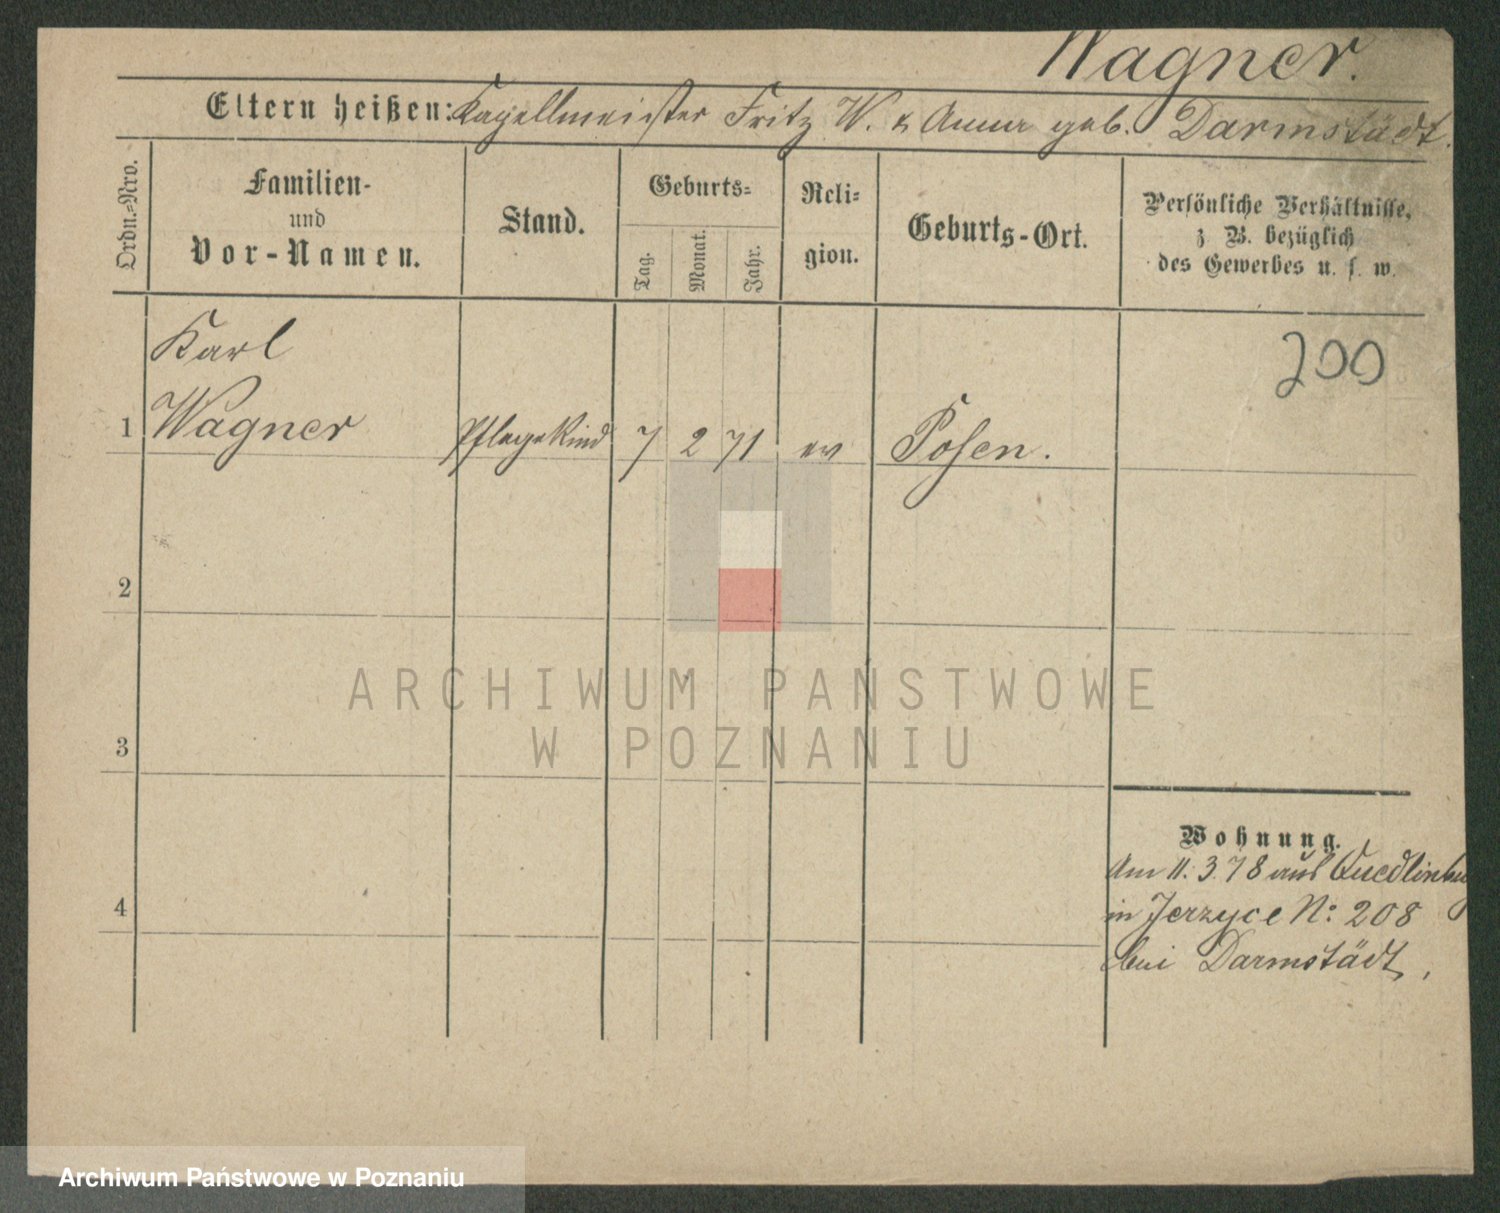 Wagner.
Eltern heißen: Kapellmeister Fritz W. & Anna geb. Darmstädt.
Ordn.-Nro.
Familien-
und
Vor-Namen.
Stand.
Geburts-
Tag.
Monat.
Jahr.
Reli-
gion.
Geburts-Ort.
Persönliche Verhältnisse,
z. B. bezüglich
des Gewerbes u. s. w.
Karl
200
1 Wagner Pflegekind 7 2 71 ev Posen.
2
3
4
Wohnung.
Am 11. 3. 78 aus Quedlinburg
in Jerzyce No: 208
bei Darmstädt,
ARCHIWUM PAŃSTWOWE
W POZNANIU
Archiwum Państwowe w Poznaniu